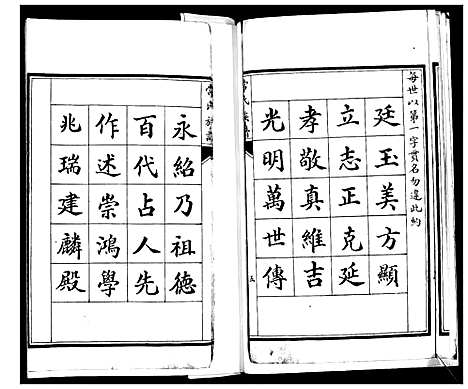 每世以第一字貫名勿違此約
廷玉美方顯
立志正克延
孝敬真維吉
光明萬世傳
五
常氏族譜
永紹乃祖德
百代占人先
作述崇鴻學
兆瑞建麟殿